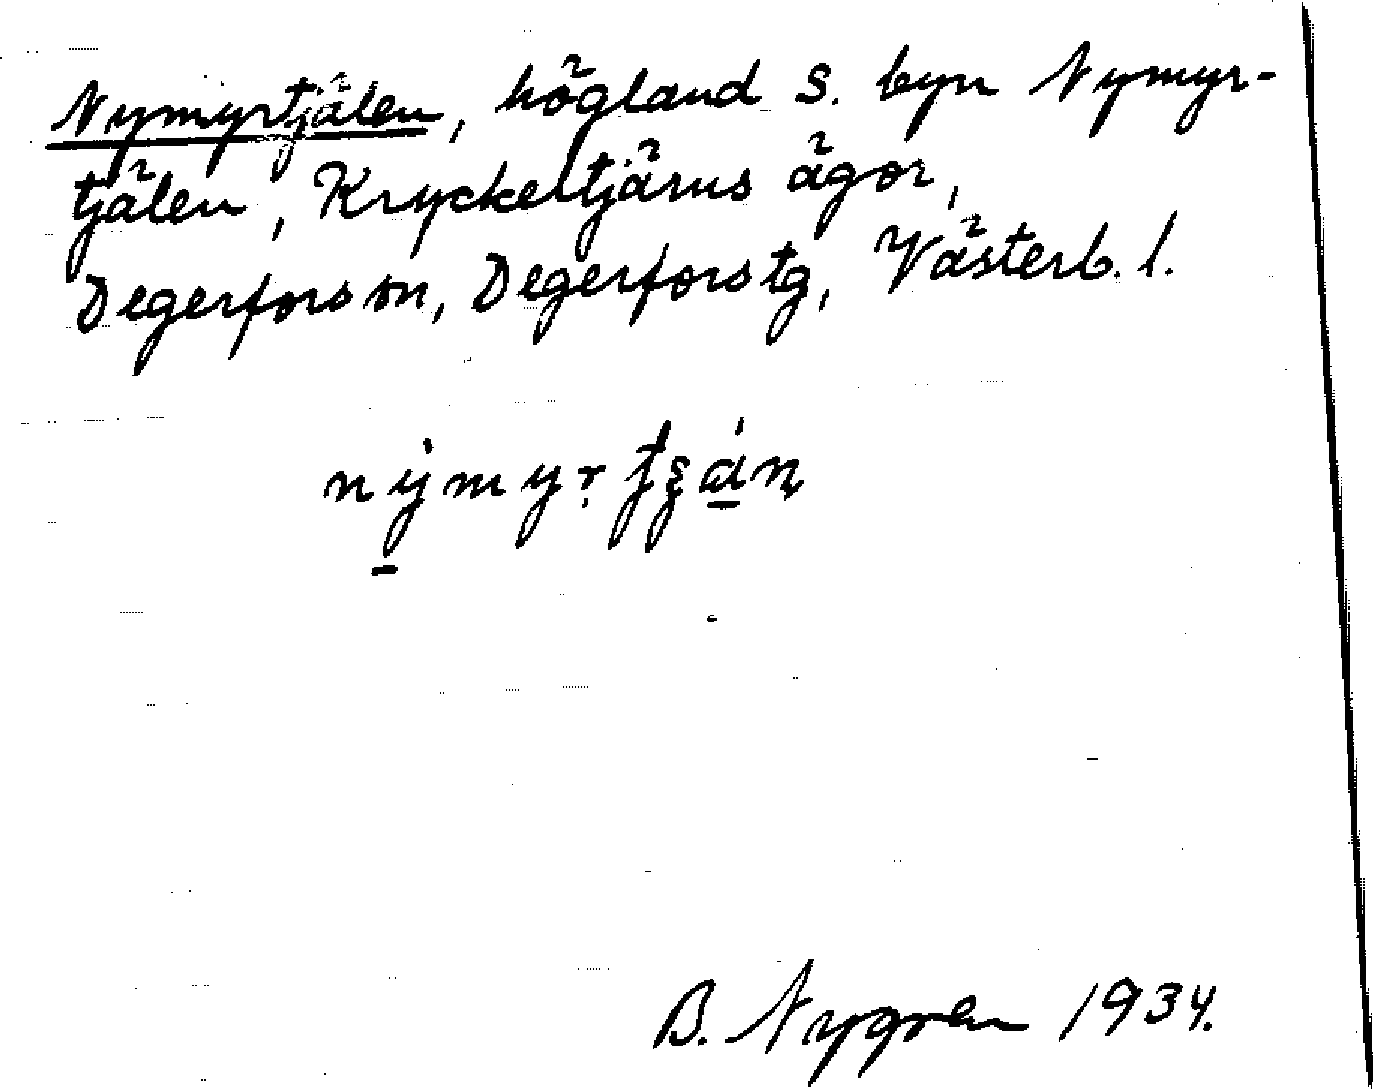 Nymyrtjälen, högland S. byn Nymyr-
tjälen, Kryckeltjärns ägor,
Degerfors sn, Degerfors tg, Västerb. l.
B. Nygren 1934.